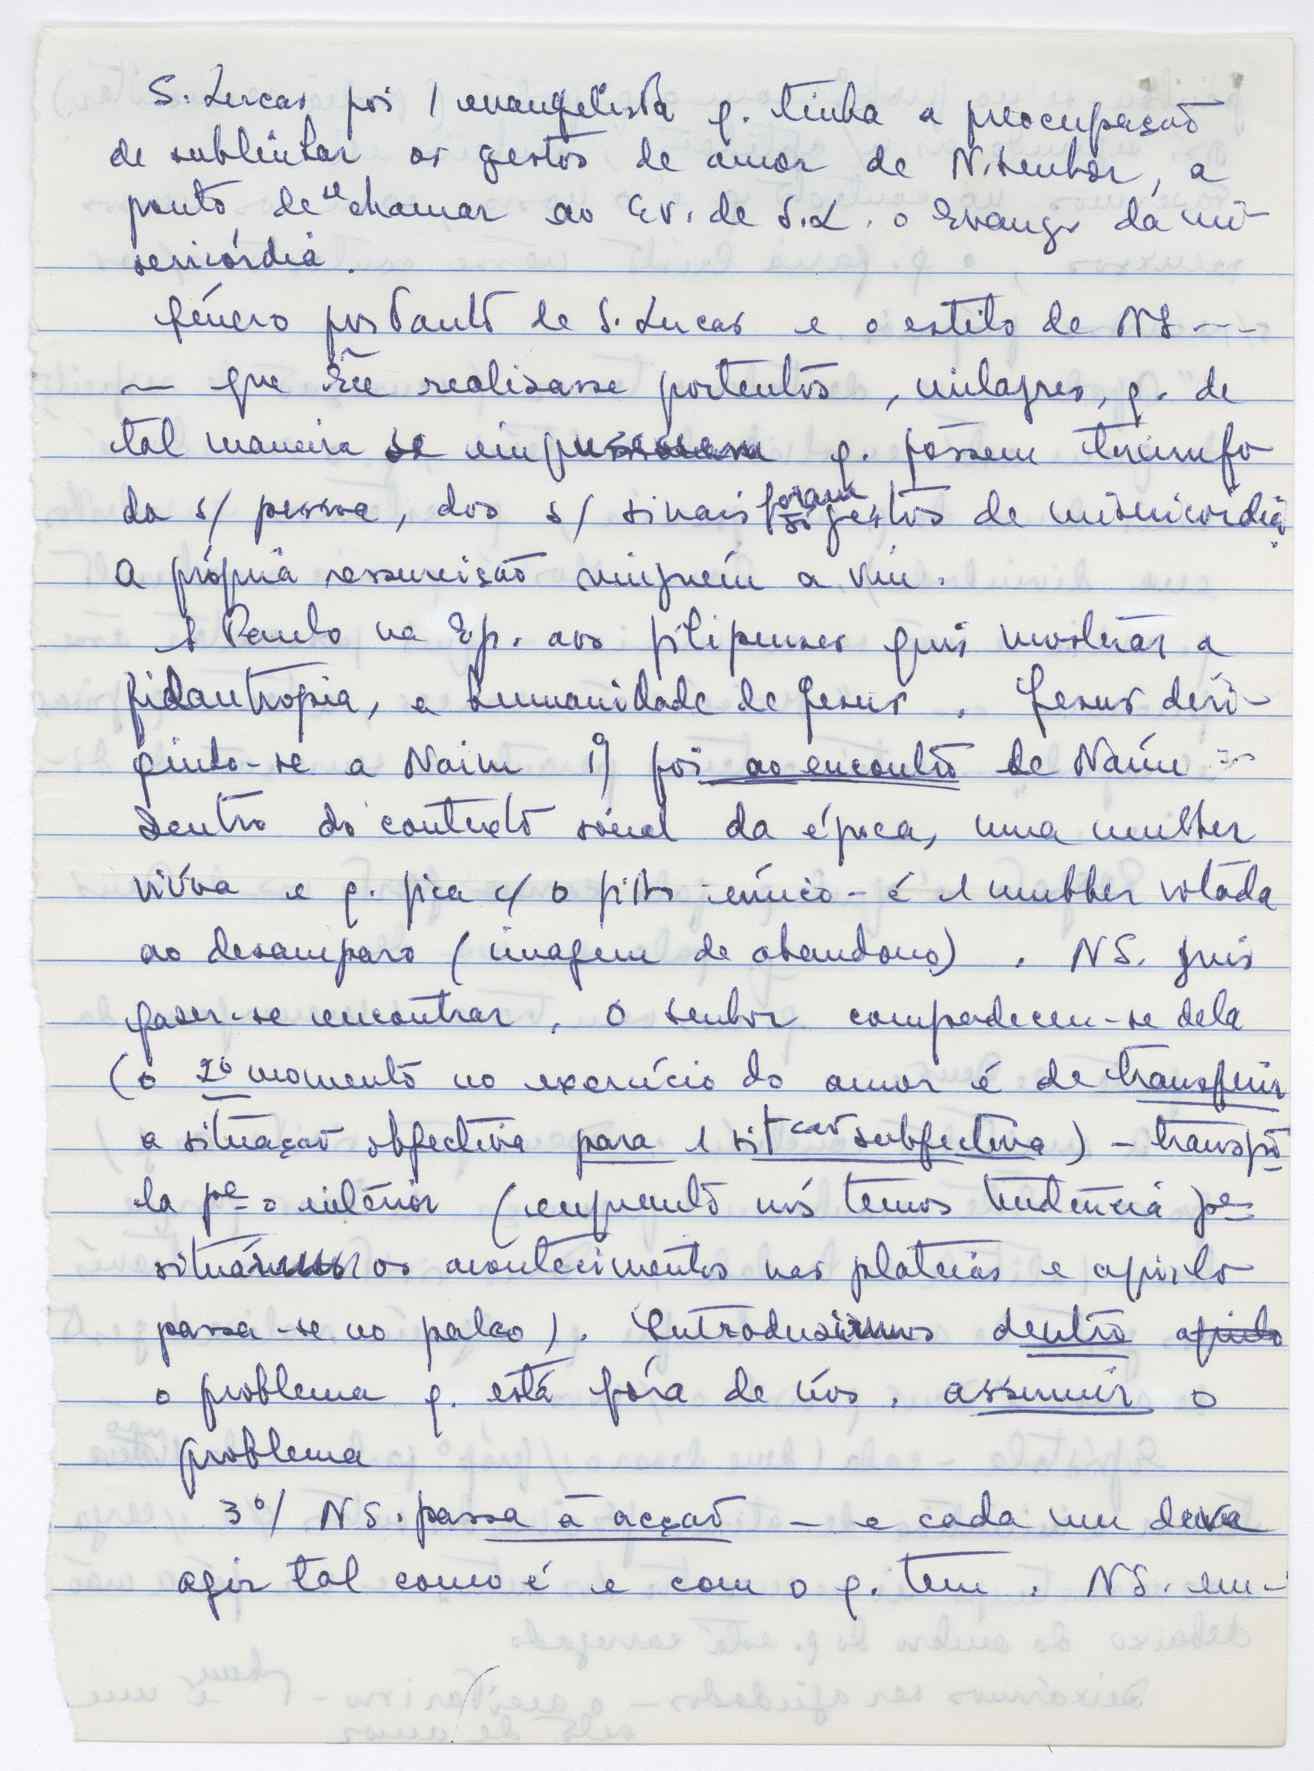 S. Lucas foi 1 evangelista q. tinha a preocupação
de sublinhar os gestos de amor de N. Senhor, a
ponto de se chamar ao Ev. de S. L. o Evang. da mi-
sericórdia.
Género portanto de S. Lucas e o estilo de NS ---
— que Ele realisasse portentos, milagres, q. de
tal maneira se impusessem q. fossem triunfo
da s/ pessoa, dos s/ sinais foram gestos de misericórdia.
A própria ressurreição ninguém a viu.
S Paulo na Ep. aos filipenses quis mostrar a
filantropia, a humanidade de Jesus. Jesus diri-
gindo-se a Naim 1º foi ao encontro de Naím
Dentro do contexto social da época, uma mulher
viúva e q. fica c/ o filho único - é 1 mulher votada
ao desamparo (imagem de abandono). NS. quis
fazer-se encontrar. O Senhor compadeceu-se dela
(o 2º momento no exercício do amor é de transferir
a situação objectiva para 1 sitção subjectiva) - transpô
la pª o interior (enquanto nós temos tendência pª
situármos os acontecimentos nas plateias e aquilo
passa-se no palco). Introduzirmos dentro aquilo
o problema q. está fóra de nós. assumir o
problema
3º/ NS. passa à acção - e cada um deve
agir tal como é e com o q. tem. NS. em-